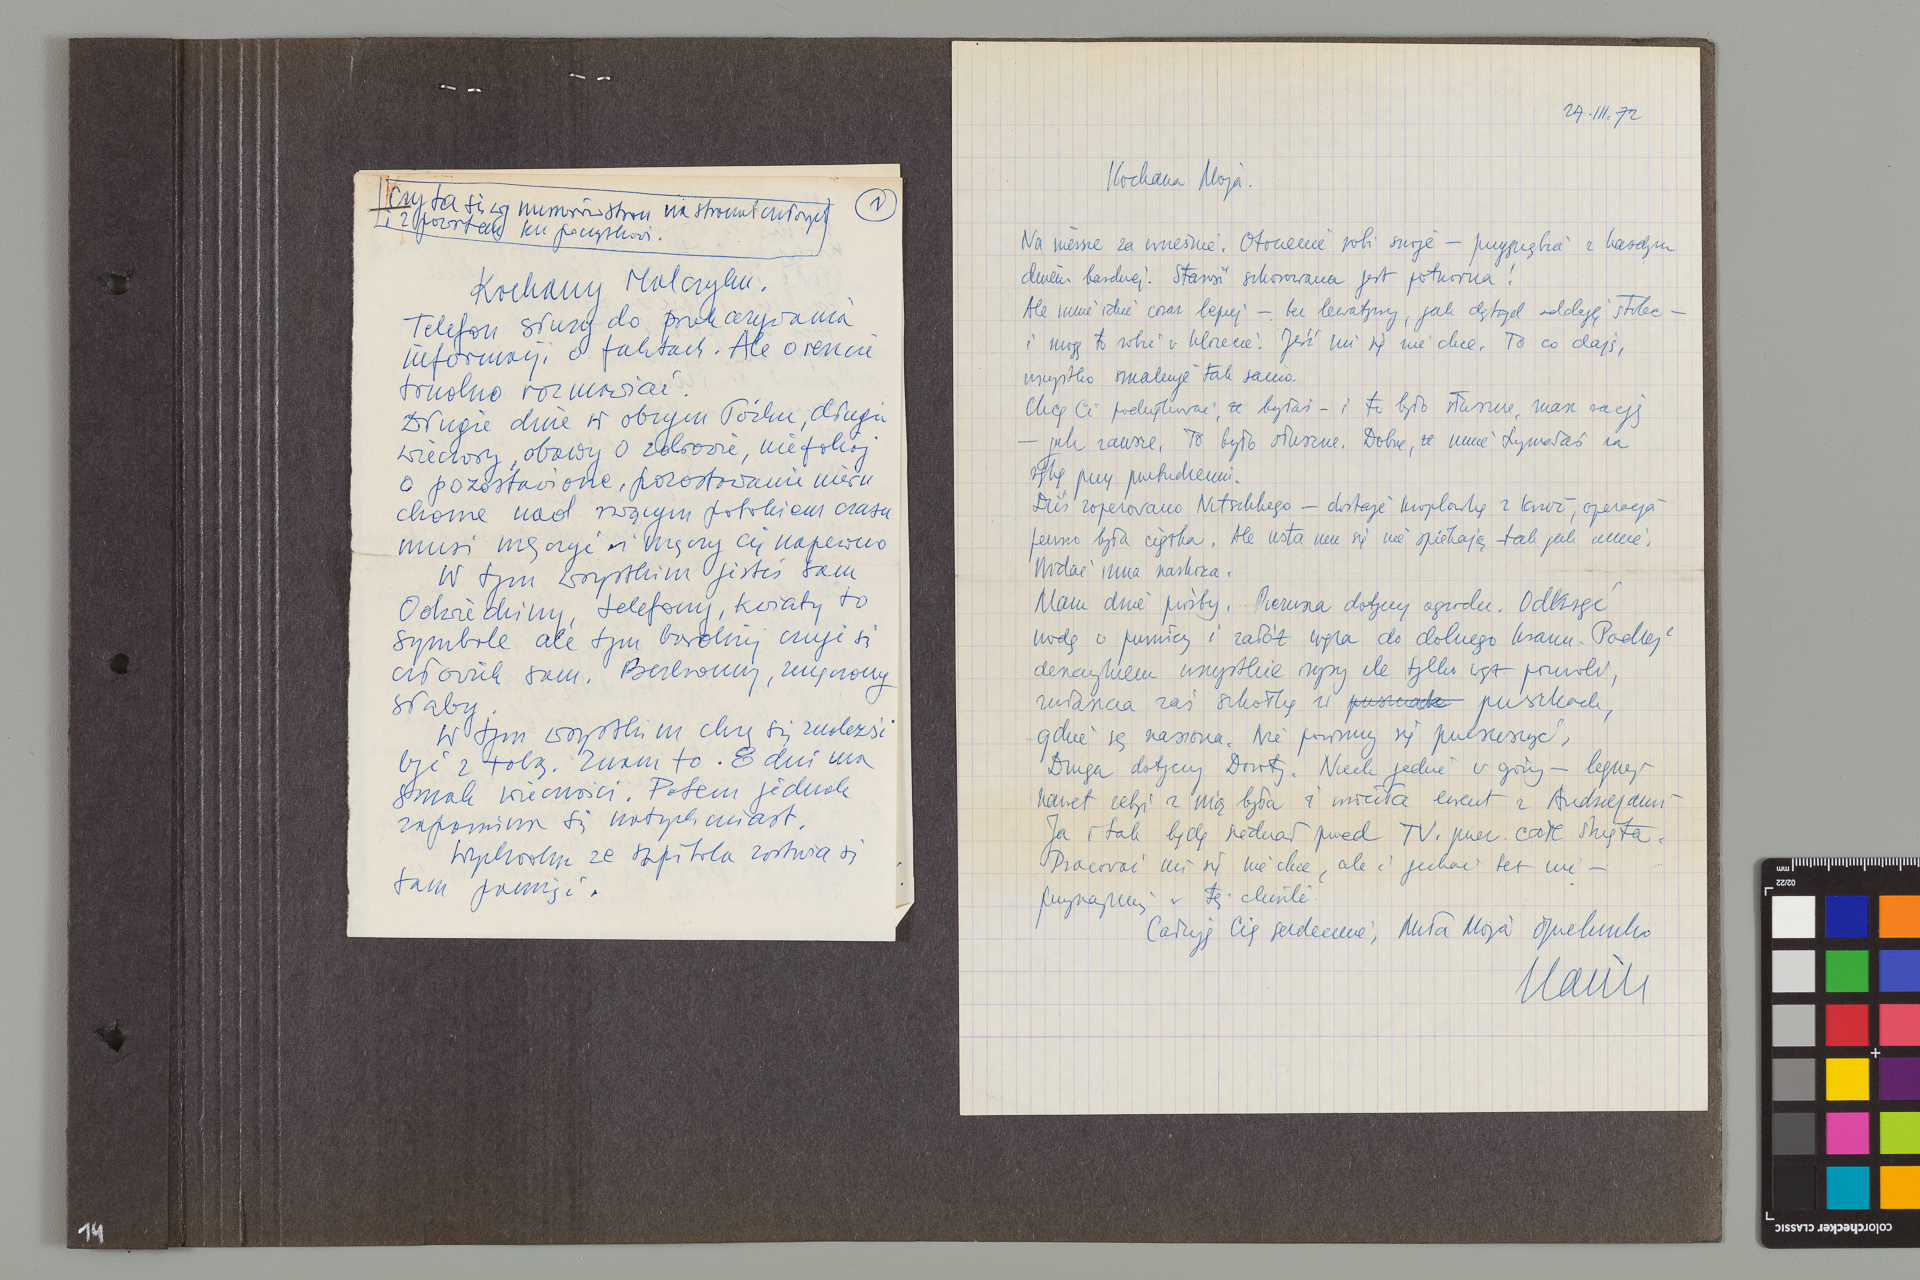 Czyta się wg numerów stron na stronach których
i 2 pozostaw ku początkowi.
1
Kochany Malczyku.
Telefon służy do przekazywania
informacji o faktach. Ale o reszcie
trudno rozmawiać.
Długie dnie w obcym łóżku, długie
wieczory, obawy o zdrowie, niepokój
o pozostawione, pozostawanie nieru
chome nad rwącym potokiem czasu
musi męczyć i męczy Cię napewno
W tym wszystkim jesteś sam
Odwiedziny, telefony, kwiaty to
symbole ale tym bardziej czuje się
człowiek sam. Bezbronny, zmęczony
słaby.
W tym wszystkim chcę się znaleźć i
być z Tobą. Znam to. 8 dni ma
smak wieczności. Potem jednak
zapomina się natychmiast.
Wychodzę ze szpitala zostawia się
tam pamięć.
27.III.72
Kochana Moja.
Na mięso za wcześnie. Otoczenie robi swoje – przygnębia z każdym
dniem bardziej. Starość schorowana jest potworna!
Ale mnie idzie coraz lepiej – bez lewatywy, jak dotąd oddaję stolec –
i mogę to robić w klozecie. Jeść mi się nie chce. To co dają,
wszystko smakuje tak samo.
Chcę Ci podziękować, że byłaś – i to było słuszne, masz rację
– jak zawsze. To było słuszne. Dobrze, że mnie trzymałaś za
rękę przy przebudzeniu.
Dziś zoperowano Nitschkego – dostaje kroplówkę z krwi, operacja
pewno była ciężka. Ale usta mu się nie spiekają tak jak mnie.
Widać inna narkoza.
Mam dwie prośby. Pierwsza dotyczy ogrodu. Odkręć
wodę w piwnicy i załóż węża do dolnego kranu. Podlej
deszczykiem wszystkie rzęsy ale tylko tyle powoli,
zwłaszcza zaś szkółkę i w puszkach,
gdzie są nasiona. Nie powinny się przesuszyć,
Druga dotyczy Doroty. Niech jedzie w góry –
nawet żebyś z nią była i wróciła ewent z Andrzejami
Ja i tak będę siedział przed TV. przez całe święta.
Pracować mi się nie chce, ale i jechać też nie –
przynajmniej w tej chwili.
Całuję Cię serdecznie, Miła Moja Opiekunko